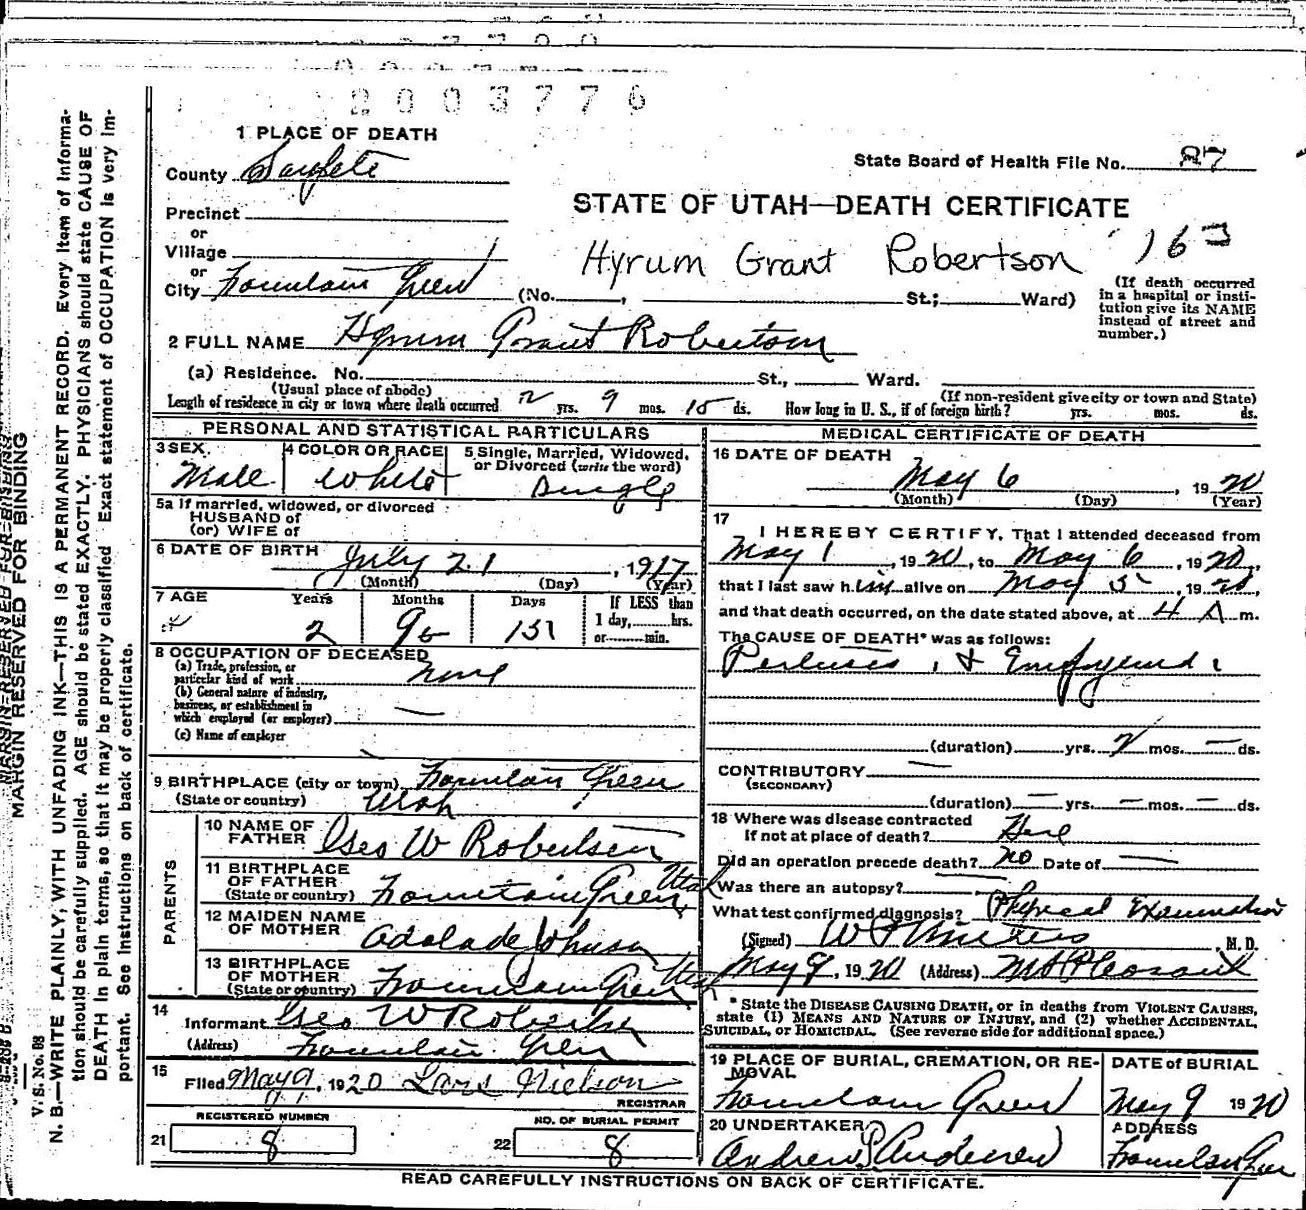 2003776
1 PLACE OF DEATH
County Sanpete
State Board of Health File No. 87
STATE OF UTAH—DEATH CERTIFICATE
Precinct
or
Village
or
City Fountain Green
Hyrum Grant Robertson 163
(No. , St.; Ward)
(If death occurred in a hospital or insti-
tution give its NAME
instead of street and
number.)
2 FULL NAME Hyrum Grant Robertson
(a) Residence. No. St., Ward.
(Usual place of abode) (If non-resident give city or town and State)
Length of residence in city or town where death occurred 2 yrs. 9 mos. 15 ds. How long in U. S., if of foreign birth? yrs. mos. ds.
PERSONAL AND STATISTICAL PARTICULARS
3 SEX 4 COLOR OR RACE 5 Single, Married, Widowed,
or Divorced (write the word)
Male White Single
5a If married, widowed, or divorced
HUSBAND of
(or) WIFE of
6 DATE OF BIRTH July 21, 1917
(Month) (Day) (Year)
7 AGE Years Months Days If LESS than
1 day, hrs.
or min.
2 9 15
8 OCCUPATION OF DECEASED
(a) Trade, profession, or
particular kind of work None
(b) General nature of industry,
business, or establishment in
which employed (or employer)
(c) Name of employer
9 BIRTHPLACE (city or town) Fountain Green
(State or country) Utah
PARENTS
10 NAME OF
FATHER Geo W Robertson
11 BIRTHPLACE
OF FATHER
(State or country) Fountain Green Utah
12 MAIDEN NAME
OF MOTHER Adalade Johnson
13 BIRTHPLACE
OF MOTHER
(State or country) Fountain Green Utah
14
Informant Geo W Robertson
(Address) Fountain Green
15
Filed May 9, 1920 Lars Nielson
REGISTRAR
REGISTERED NUMBER NO. OF BURIAL PERMIT
21 8 22 8
MEDICAL CERTIFICATE OF DEATH
16 DATE OF DEATH
May 6, 1920
(Month) (Day) (Year)
17
I HEREBY CERTIFY, That I attended deceased from
May 1, 1920, to May 6, 1920,
that I last saw him alive on May 5, 1920,
and that death occurred, on the date stated above, at 4 A m.
The CAUSE OF DEATH* was as follows:
(duration) yrs. 2 mos. — ds.
CONTRIBUTORY —
(SECONDARY)
(duration) — yrs. — mos. — ds.
18 Where was disease contracted
if not at place of death? Here
Did an operation precede death? no Date of —
Was there an autopsy?
What test confirmed diagnosis? Physical Examination
(Signed) M. D.
May 9, 1920 (Address) Mt Pleasant
* State the DISEASE CAUSING DEATH, or in deaths from VIOLENT CAUSES,
state (1) MEANS AND NATURE OF INJURY, and (2) whether ACCIDENTAL,
SUICIDAL, or HOMICIDAL. (See reverse side for additional space.)
19 PLACE OF BURIAL, CREMATION, OR RE-
MOVAL
DATE of BURIAL
Fountain Green May 9 1920
20 UNDERTAKER ADDRESS
Fountain Green
READ CAREFULLY INSTRUCTIONS ON BACK OF CERTIFICATE.
MARGIN RESERVED FOR BINDING
V. S. No. 88
N. B.—WRITE PLAINLY, WITH UNFADING INK—THIS IS A PERMANENT RECORD. Every item of informa-
tion should be carefully supplied. AGE should be stated EXACTLY. PHYSICIANS should state CAUSE OF
DEATH in plain terms, so that it may be properly classified. Exact statement of OCCUPATION is very im-
portant. See instructions on back of certificate.